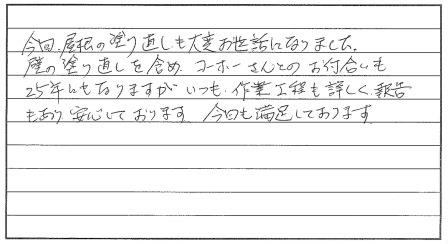 今回、屋根の塗り直しも大変お世話になりました。
壁の塗り直しを含め、コーホーさんとのお付合いも
25年にもなりますが いつも、作業工程も詳しく、報告
もあり 安心しております 今回も満足しております